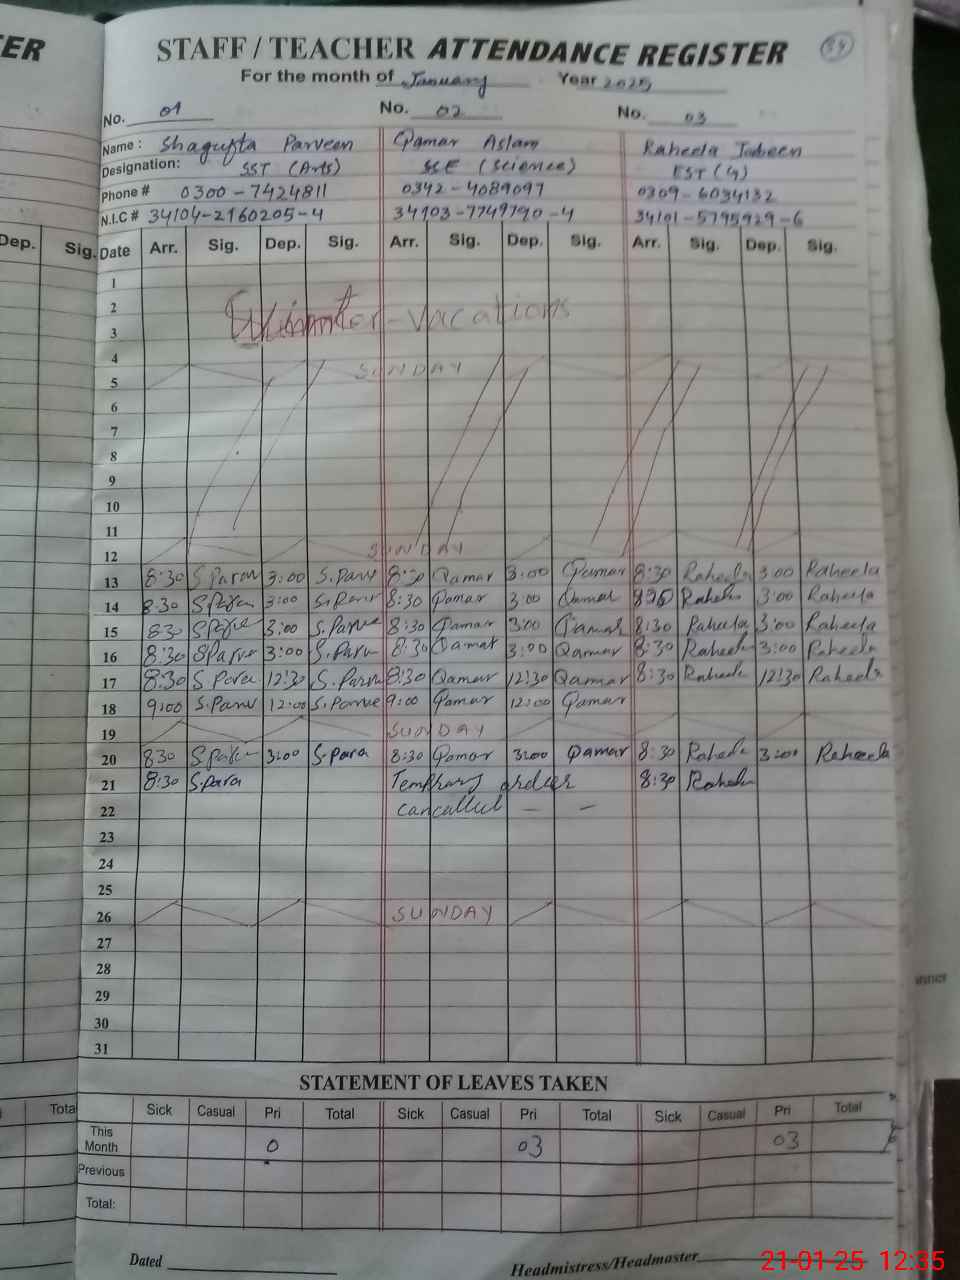 ER
STAFF / TEACHER ATTENDANCE REGISTER 34
For the month of January Year 2025
No. 01 No. 02 No. 03
Name : Shagufta Parveen Qamar Aslam Raheela Jabeen
Designation: SST (Arts) SSE (Science) EST (G)
Phone # 0300-7424811 0342-4089097 0309-6034132
N.I.C # 34104-2160205-4 34103-7749790-4 34101-5795929-6
Dep. Sig. Date Arr. Sig. Dep. Sig. Arr. Sig. Dep. Sig. Arr. Sig. Dep. Sig.
1
2 Winter-Vacations
3
4
5 SUNDAY
6
7
8
9
10
11
12 SUNDAY
13 8:30 S Parve 3:00 S. Parve 8:30 Qamar 3:00 Qamar 8:30 Raheela 3:00 Raheela
14 8:30 S Parve 3:00 S. Parve 8:30 Qamar 3:00 Qamar 8:30 Raheela 3:00 Raheela
15 8:30 S Parve 3:00 S. Parve 8:30 Qamar 3:00 Qamar 8:30 Raheela 3:00 Raheela
16 8:30 S Parve 3:00 S. Parve 8:30 Qamar 3:00 Qamar 8:30 Raheela 3:00 Raheela
17 8:30 S. Parve 12:30 S. Parve 8:30 Qamar 12:30 Qamar 8:30 Raheela 12:30 Raheela
18 9:00 S. Parve 12:00 S. Parve 9:00 Qamar 12:00 Qamar
19 SUNDAY
20 830 S Parve 3:00 S. Para 8:30 Qamar 3:00 Qamar 8:30 Raheela 3:00 Raheela
21 8:30 S. Para Temprary order 8:30 Raheela
22 cancalled — —
23
24
25
26 SUNDAY
27
28
29
30
31
STATEMENT OF LEAVES TAKEN
Tota Sick Casual Pri Total Sick Casual Pri Total Sick Casual Pri Total
This Month 0 03 03
Previous
Total:
Dated Headmistress/Headmaster
21-01-25 12:35